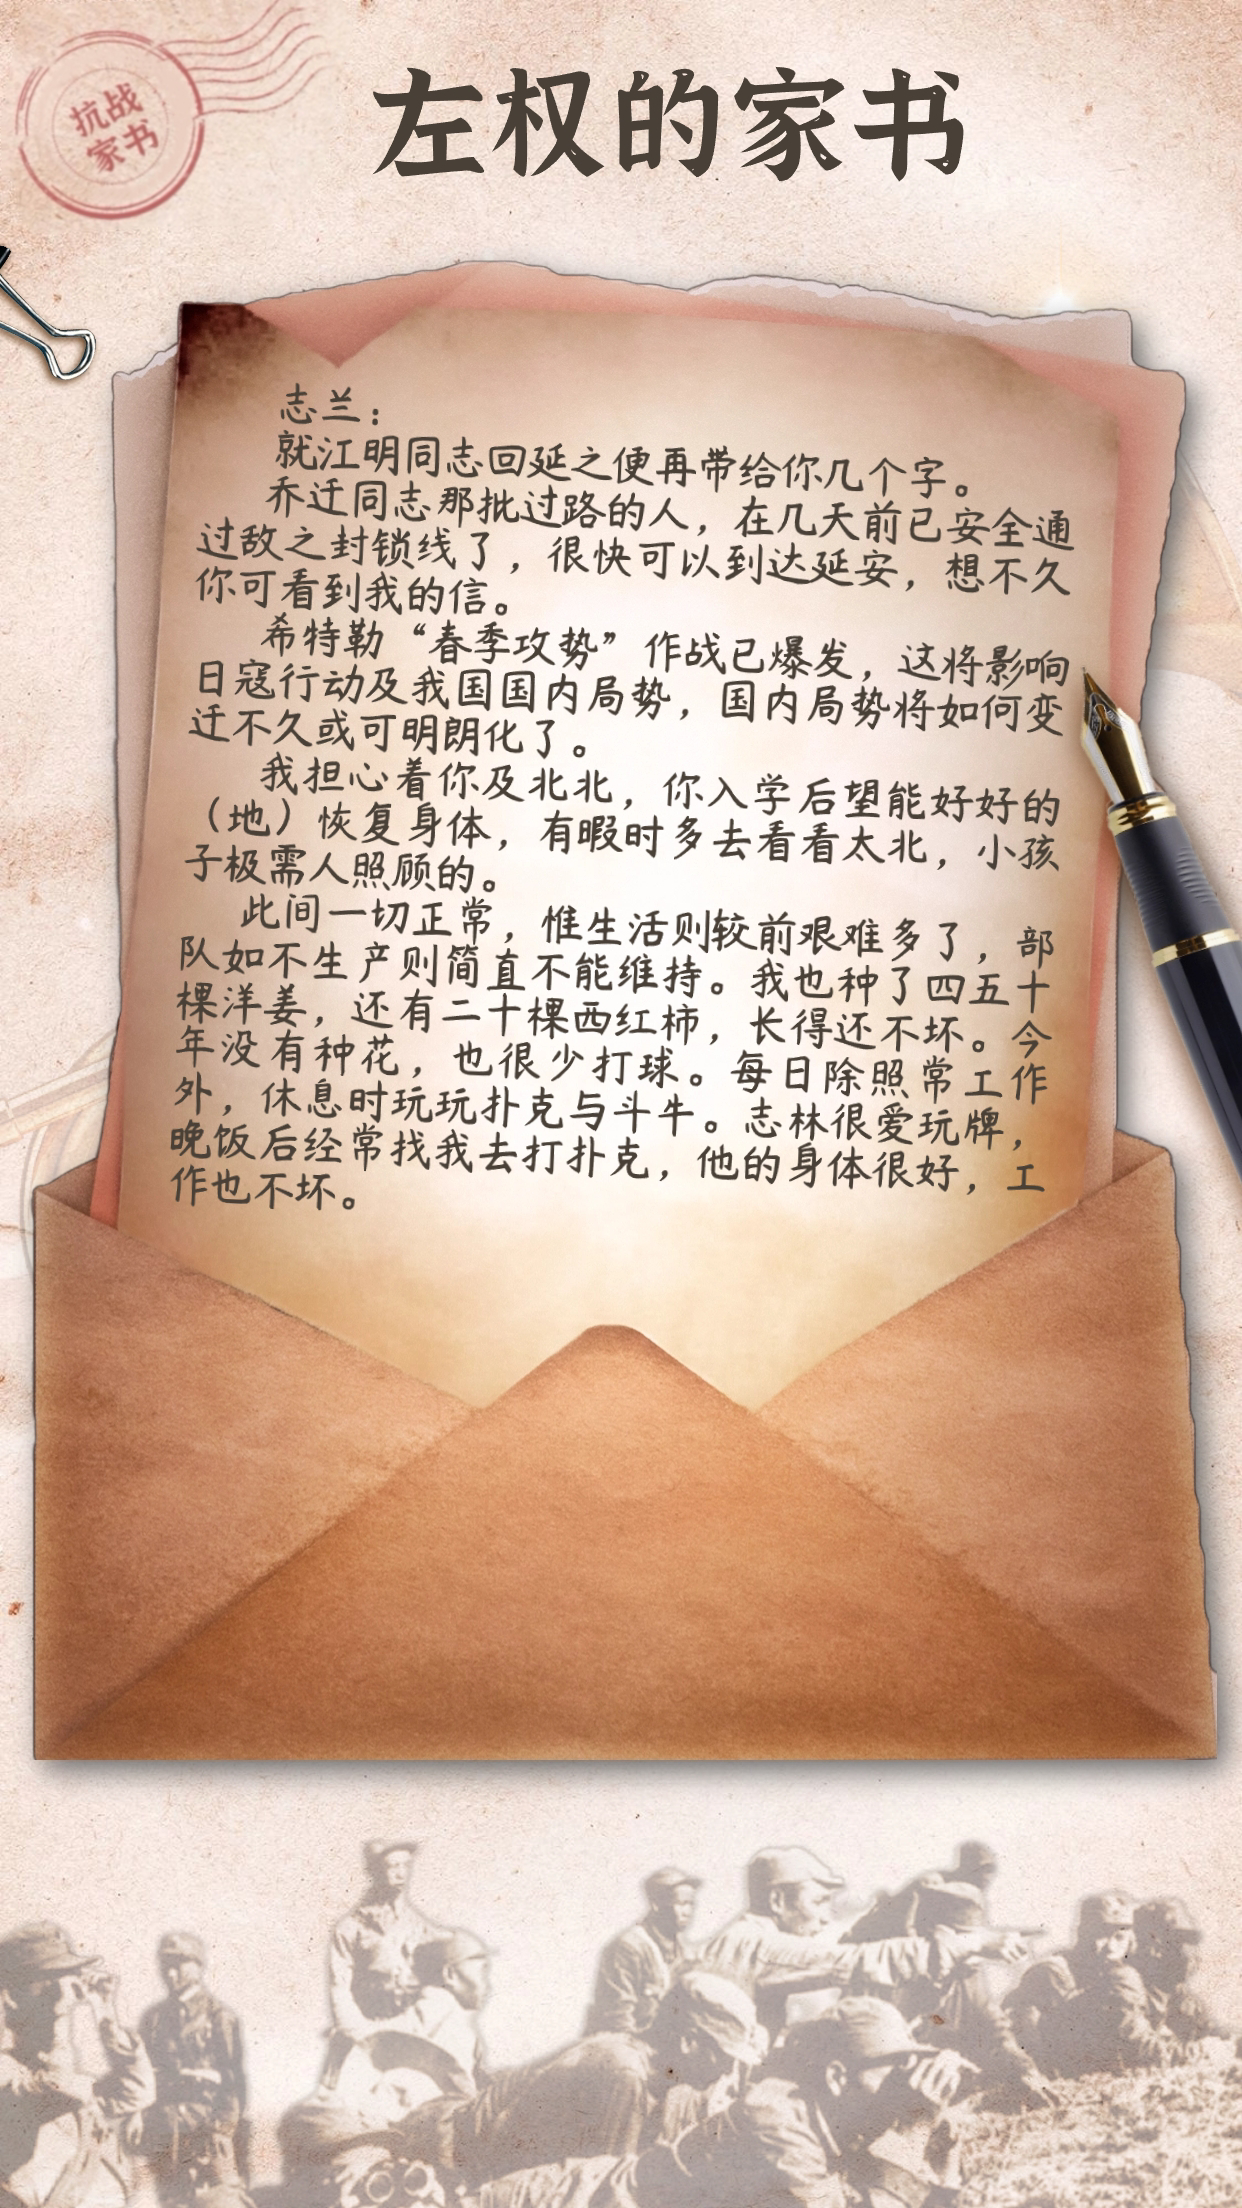 抗战
家书
左权的家书
志兰：
就江明同志回延之便再带给你几个字。
乔迁同志那批过路的人，在几天前已安全通
过敌之封锁线了，很快可以到达延安，想不久
你可看到我的信。
希特勒“春季攻势”作战已爆发，这将影响
日寇行动及我国国内局势，国内局势将如何变
迁不久或可明朗化了。
我担心着你及北北，你入学后望能好好的
（地）恢复身体，有暇时多去看看太北，小孩
子极需人照顾的。
此间一切正常，惟生活则较前艰难多了，部
队如不生产则简直不能维持。我也种了四五十
棵洋姜，还有二十棵西红柿，长得还不坏。今
年没有种花，也很少打球。每日除照常工作
外，休息时玩玩扑克与斗牛。志林很爱玩牌，
晚饭后经常找我去打扑克，他的身体很好，工
作也不坏。